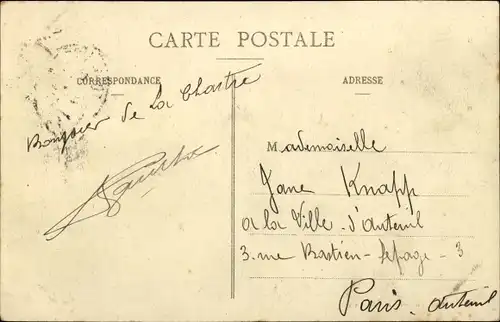 CARTE POSTALE
CORRESPONDANCE
ADRESSE
Bonjour de La Chastre
Mademoiselle
Jane Knapp
a la Ville d'auteuil
3. rue Bastien-lepage - 3
Paris. auteuil